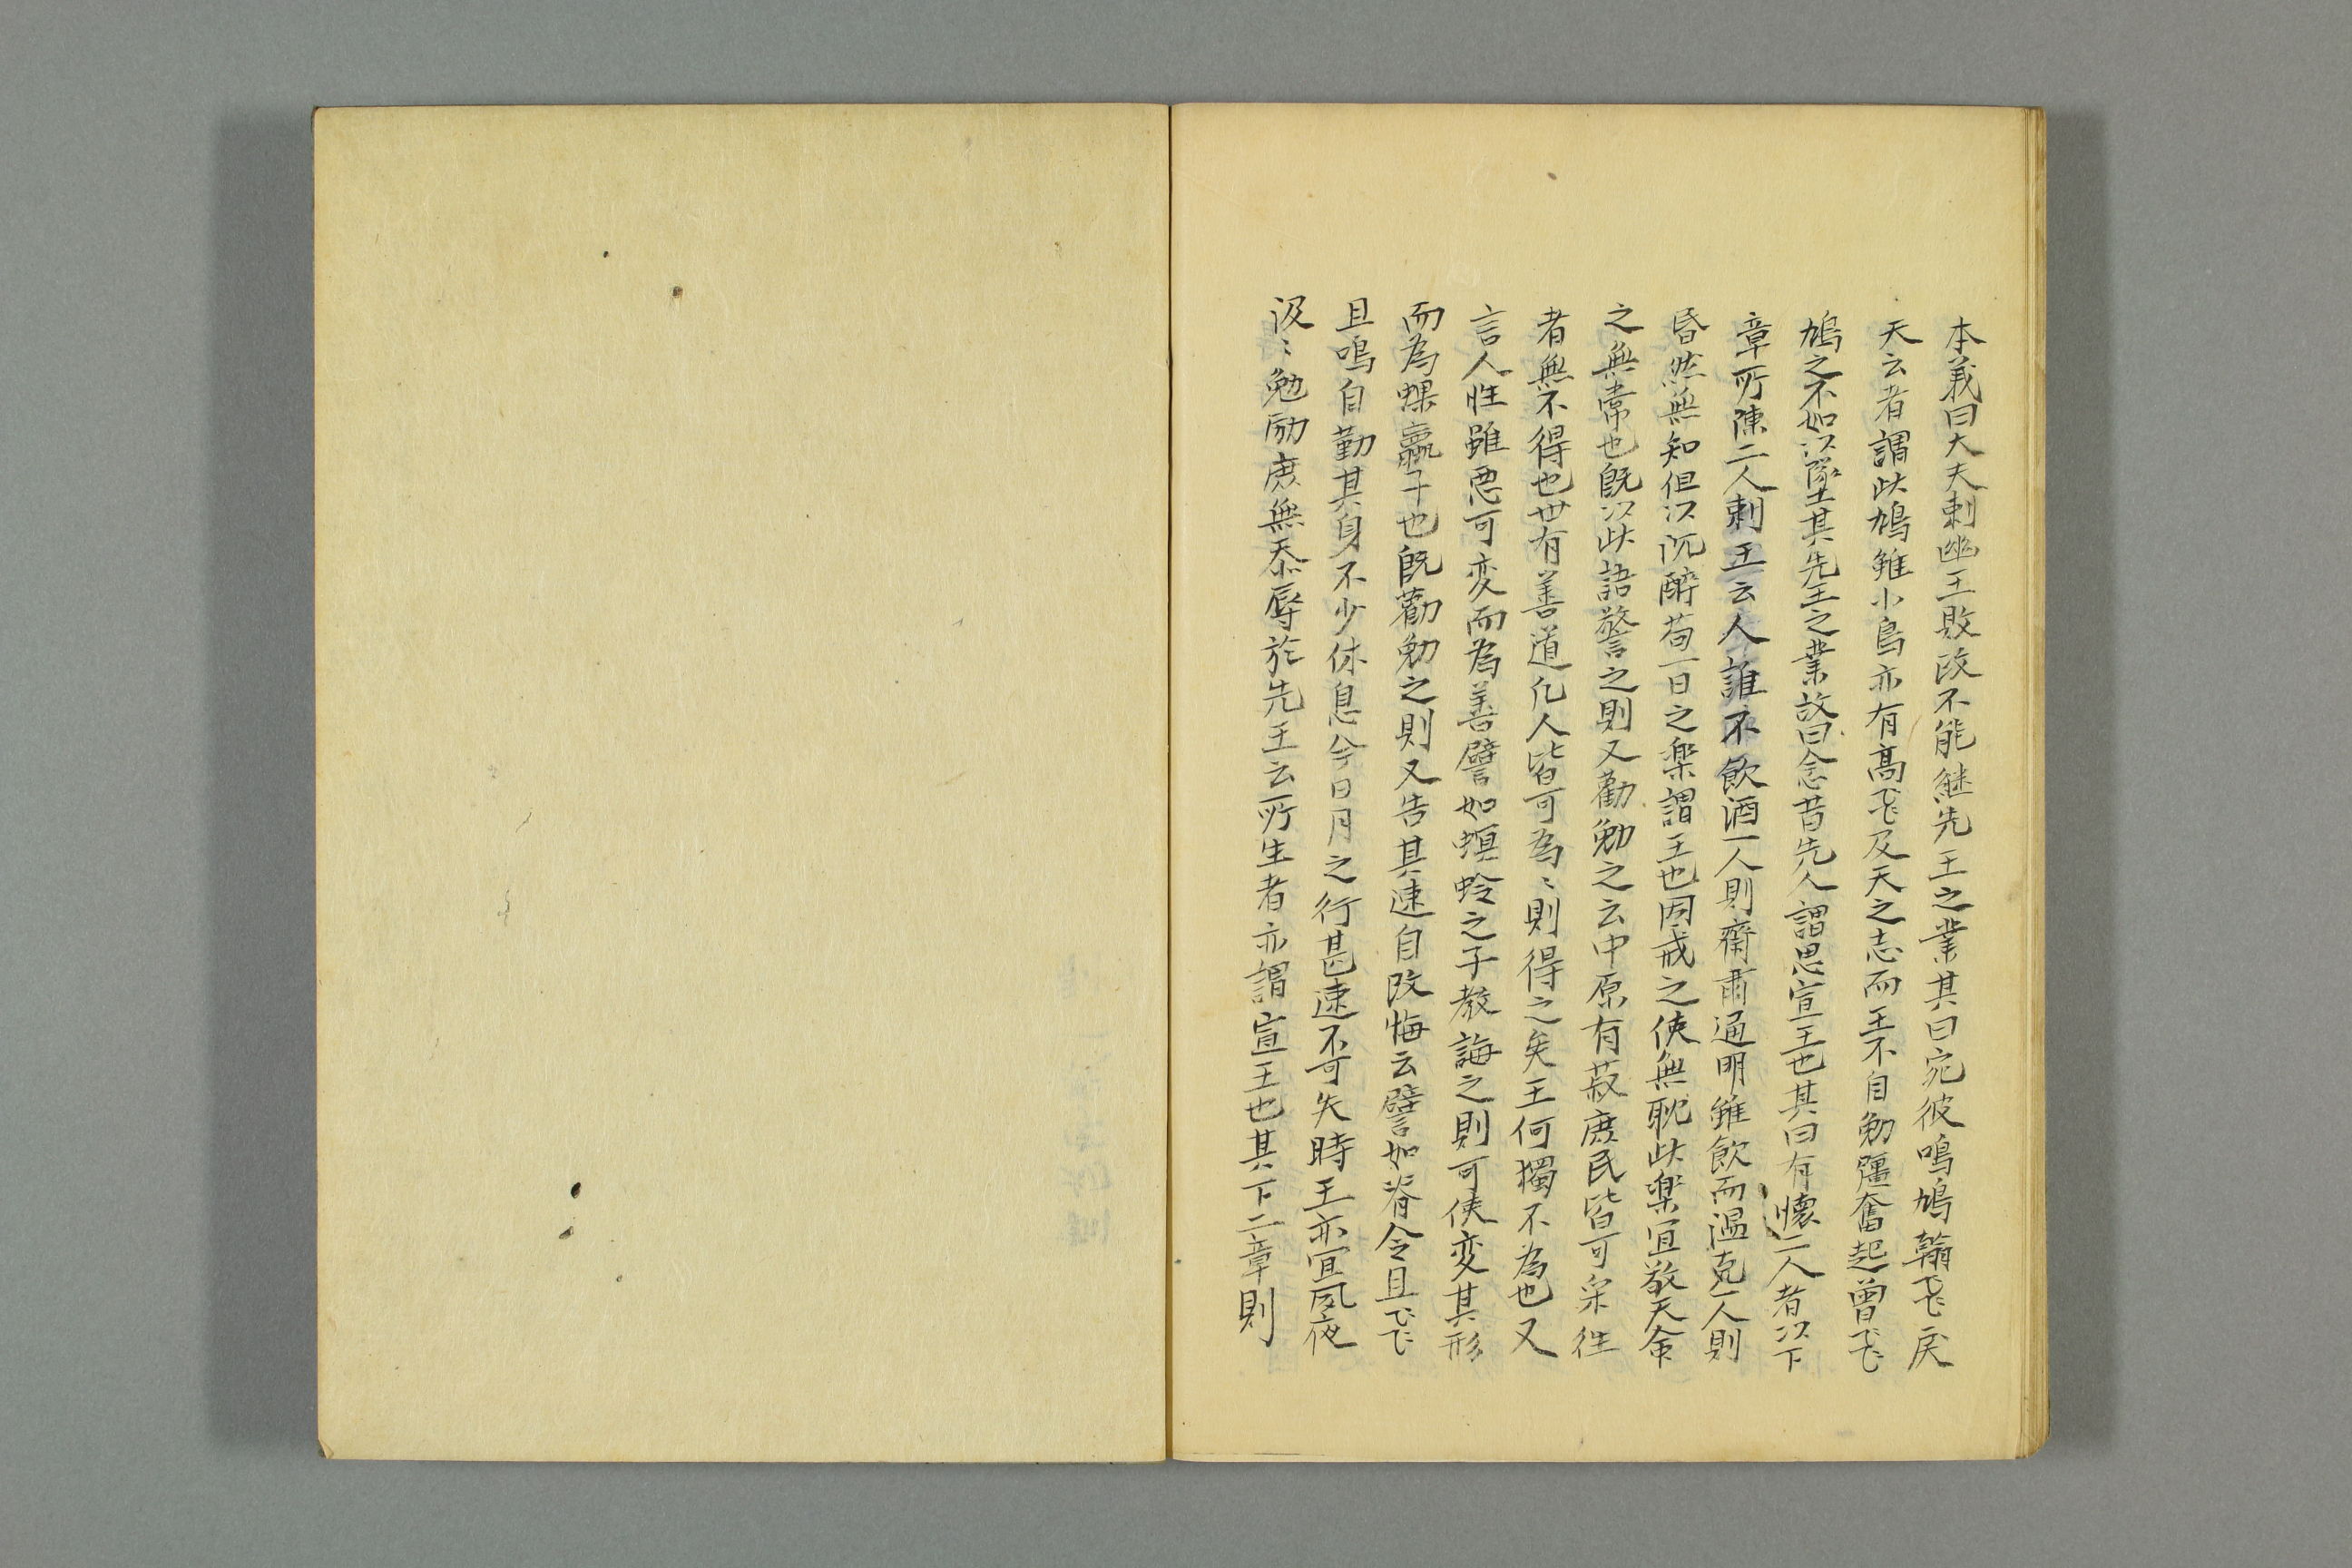 本義曰大夫刺幽王敗政不能継先王之業其曰宛彼鳴鳩翰飛戻
天云者謂此鳩雖小鳥亦有髙飛及天之志而王不自勉彊奮起曽飛
鳩之不如以墜其先王之業故曰念昔先人謂思宣王也其曰有懐二人者以下
章所陳二人刺王云人誰不飲酒一人則齊肅通明雖飲而温克一人則
昏然無知但以沉酔苟一日之楽謂王也因戒之使無耽此楽宜敬天命
之無常也既以此語警之則又勸勉之云中原有菽庶民皆可采徃
者無不得也世有善道凡人皆可為〻則得之矣王何獨不為也又
言人性雖悪可変而為善譬如螟蛉之子教誨之則可使変其形
而為蜾蠃子也既勸勉之則又告其速自改悔云譬如脊令且飛
且鳴自勤其身不少休息今日月之行甚速不可失時王亦宜夙夜
汲〻勉励庶無忝辱於先王云所生者亦謂宣王也其下二章則